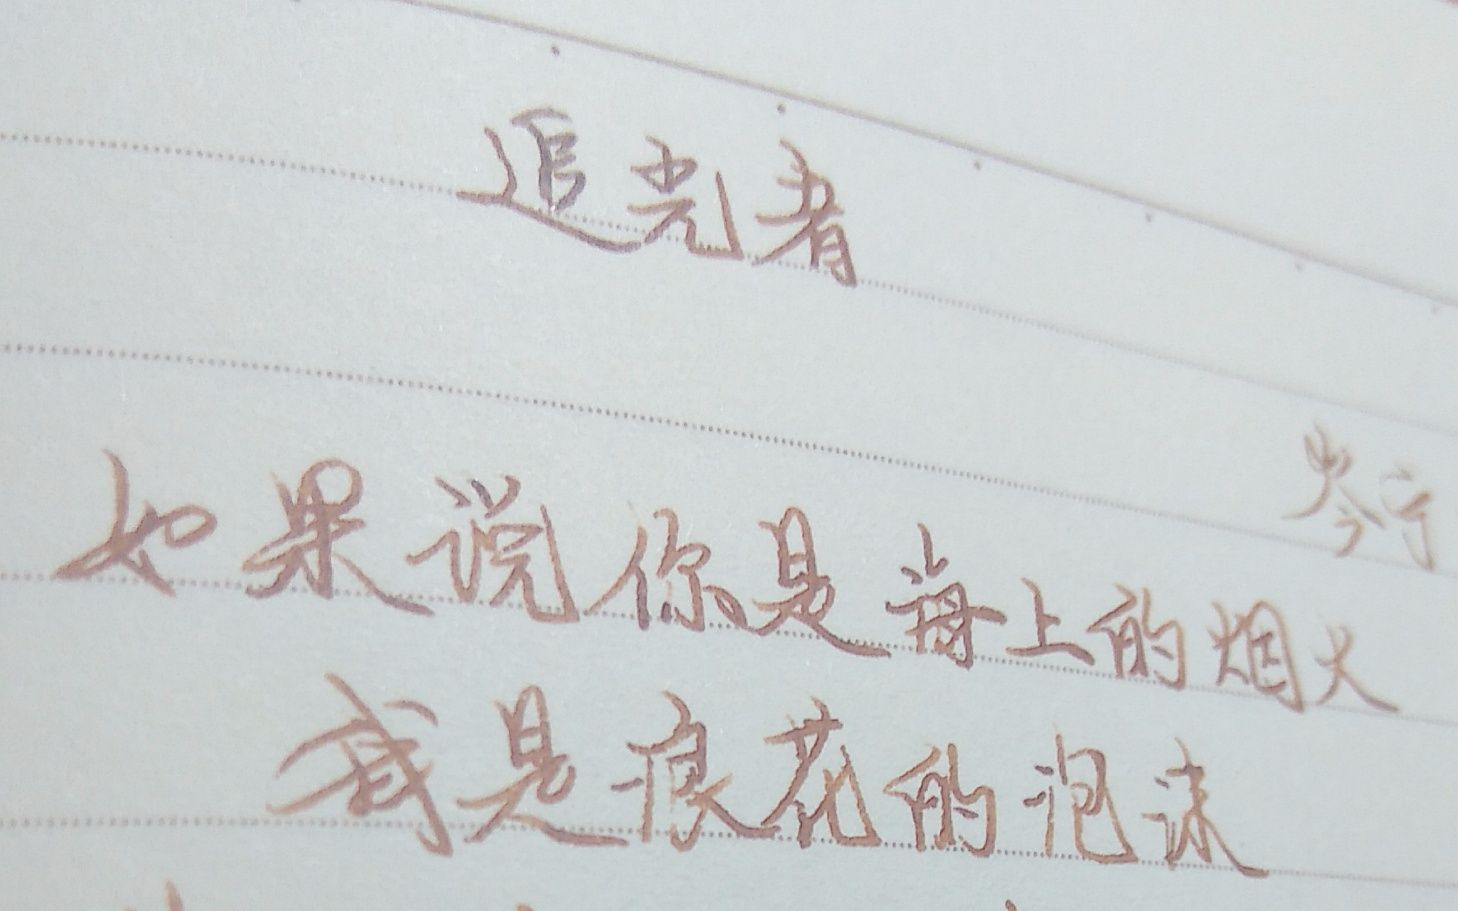 追光者
岑宁
如果说你是海上的烟火
我是浪花的泡沫